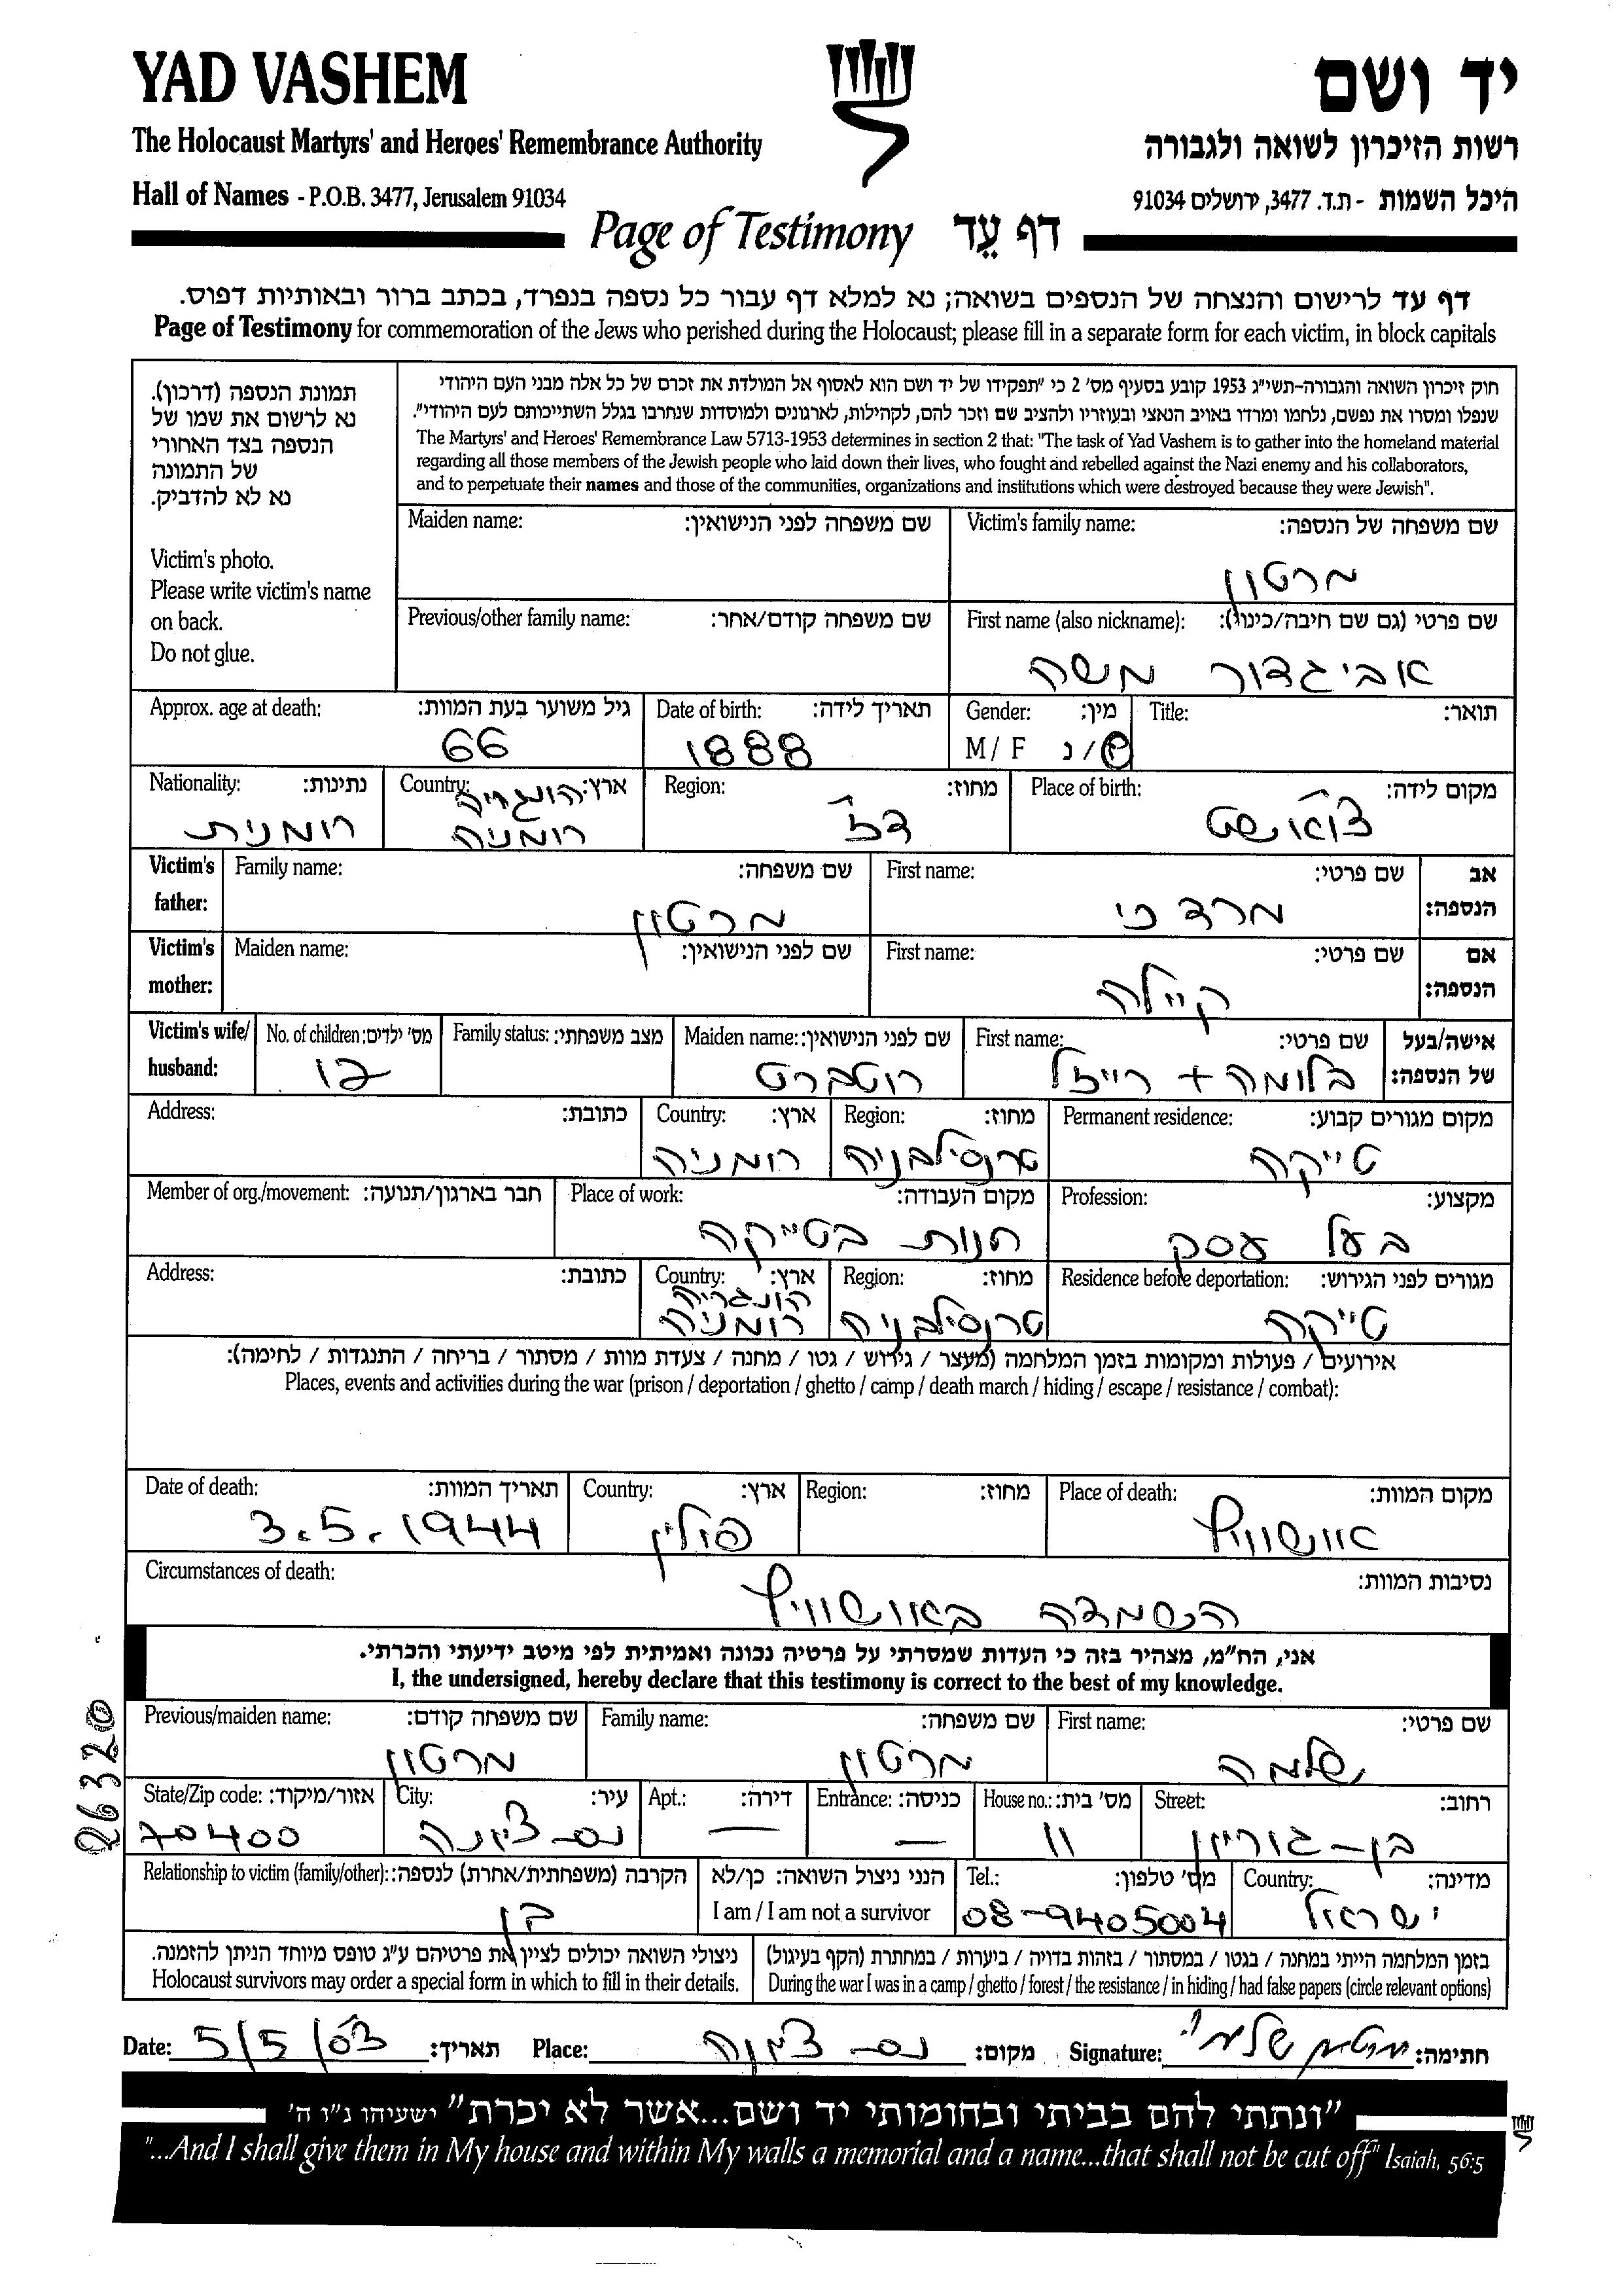 YAD VASHEM
יד ושם
The Holocaust Martyrs' and Heroes' Remembrance Authority
רשות הזיכרון לשואה ולגבורה
Hall of Names - P.O.B. 3477, Jerusalem 91034
היכל השמות - ת.ד. 3477, ירושלים 91034
Page of Testimony דף עֵד
דף עד לרישום והנצחה של הנספים בשואה; נא למלא דף עבור כל נספה בנפרד, בכתב ברור ובאותיות דפוס.
Page of Testimony for commemoration of the Jews who perished during the Holocaust; please fill in a separate form for each victim, in block capitals
תמונת הנספה (דרכון).
נא לרשום את שמו של
הנספה בצד האחורי
של התמונה
נא לא להדביק.
Victim's photo.
Please write victim's name
on back.
Do not glue.
חוק זיכרון השואה והגבורה-תשי"ג 1953 קובע בסעיף מס' 2 כי "תפקידו של יד ושם הוא לאסוף אל המולדת את זכרם של כל אלה מבני העם היהודי
שנפלו ומסרו את נפשם, נלחמו ומרדו באויב הנאצי ובעוזריו ולהציב שם וזכר להם, לקהילות, לארגונים ולמוסדות שנחרבו בגלל השתייכותם לעם היהודי".
The Martyrs' and Heroes' Remembrance Law 5713-1953 determines in section 2 that: "The task of Yad Vashem is to gather into the homeland material
regarding all those members of the Jewish people who laid down their lives, who fought and rebelled against the Nazi enemy and his collaborators,
and to perpetuate their names and those of the communities, organizations and institutions which were destroyed because they were Jewish".
Victim's family name: שם משפחה של הנספה:
מרטון
Maiden name: שם משפחה לפני הנישואין:
First name (also nickname): שם פרטי (גם שם חיבה/כינוי):
אביגדור משה
Previous/other family name: שם משפחה קודם/אחר:
Title: תואר:
Gender: מין:
M / F ז/נ
Date of birth: תאריך לידה:
1888
Approx. age at death: גיל משוער בעת המוות:
66
Place of birth: מקום לידה:
Region: מחוז:
דז'
Country: ארץ:
הונגריה
רומניה
Nationality: נתינות:
רומנית
Victim's father: אב הנספה:
First name: שם פרטי:
מרדכי
Family name: שם משפחה:
מרטון
Victim's mother: אם הנספה:
First name: שם פרטי:
קיילה
Maiden name: שם לפני הנישואין:
Victim's wife/ husband: אישה/בעל של הנספה:
First name: שם פרטי:
בלומה + רייזל
Maiden name: שם לפני הנישואין:
רוטברט
Family status: מצב משפחתי:
No. of children: מס' ילדים:
12
Permanent residence: מקום מגורים קבוע:
טייקה
Region: מחוז:
טרנסילבניה
Country: ארץ:
רומניה
Address: כתובת:
Profession: מקצוע:
בעל עסק
Place of work: מקום העבודה:
חנות בטייקה
Member of org./movement: חבר בארגון/תנועה:
Residence before deportation: מגורים לפני הגירוש:
טייקה
Region: מחוז:
טרנסילבניה
Country: ארץ:
הונגריה
רומניה
Address: כתובת:
אירועים / פעולות ומקומות בזמן המלחמה (מעצר / גירוש / גטו / מחנה / צעדת מוות / מסתור / בריחה / התנגדות / לחימה):
Places, events and activities during the war (prison / deportation / ghetto / camp / death march / hiding / escape / resistance / combat):
Place of death: מקום המוות:
אושוויץ
Region: מחוז:
Country: ארץ:
פולין
Date of death: תאריך המוות:
3.5.1944
Circumstances of death: נסיבות המוות:
השמדה באושוויץ
אני, הח"מ, מצהיר בזה כי העדות שמסרתי על פרטיה נכונה ואמיתית לפי מיטב ידיעתי והכרתי.
I, the undersigned, hereby declare that this testimony is correct to the best of my knowledge.
First name: שם פרטי:
שלמה
Family name: שם משפחה:
מרטון
Previous/maiden name: שם משפחה קודם:
מרטון
Street: רחוב:
בן-גוריון
House no.: מס' בית:
11
Entrance: כניסה:
—
Apt.: דירה:
—
City: עיר:
נס-ציונה
State/Zip code: אזור/מיקוד:
70400
Country: מדינה:
ישראל
Tel.: מס' טלפון:
08-9405004
הנני ניצול השואה: כן/לא
I am / I am not a survivor
Relationship to victim (family/other): הקרבה (משפחתית/אחרת) לנספה:
בן
בזמן המלחמה הייתי במחנה / בגטו / במסתור / בזהות בדויה / ביערות / במחתרת (הקף בעיגול)
During the war I was in a camp / ghetto / forest / the resistance / in hiding / had false papers (circle relevant options)
ניצולי השואה יכולים לציין את פרטיהם ע"ג טופס מיוחד הניתן להזמנה.
Holocaust survivors may order a special form in which to fill in their details.
Date: 5/5/03 תאריך:
Place: נס-ציונה מקום:
Signature: מרטון שלמה חתימה:
26320
"ונתתי להם בביתי ובחומותי יד ושם...אשר לא יכרת" ישעיהו נ"ו ה'
"...And I shall give them in My house and within My walls a memorial and a name...that shall not be cut off" Isaiah, 56:5